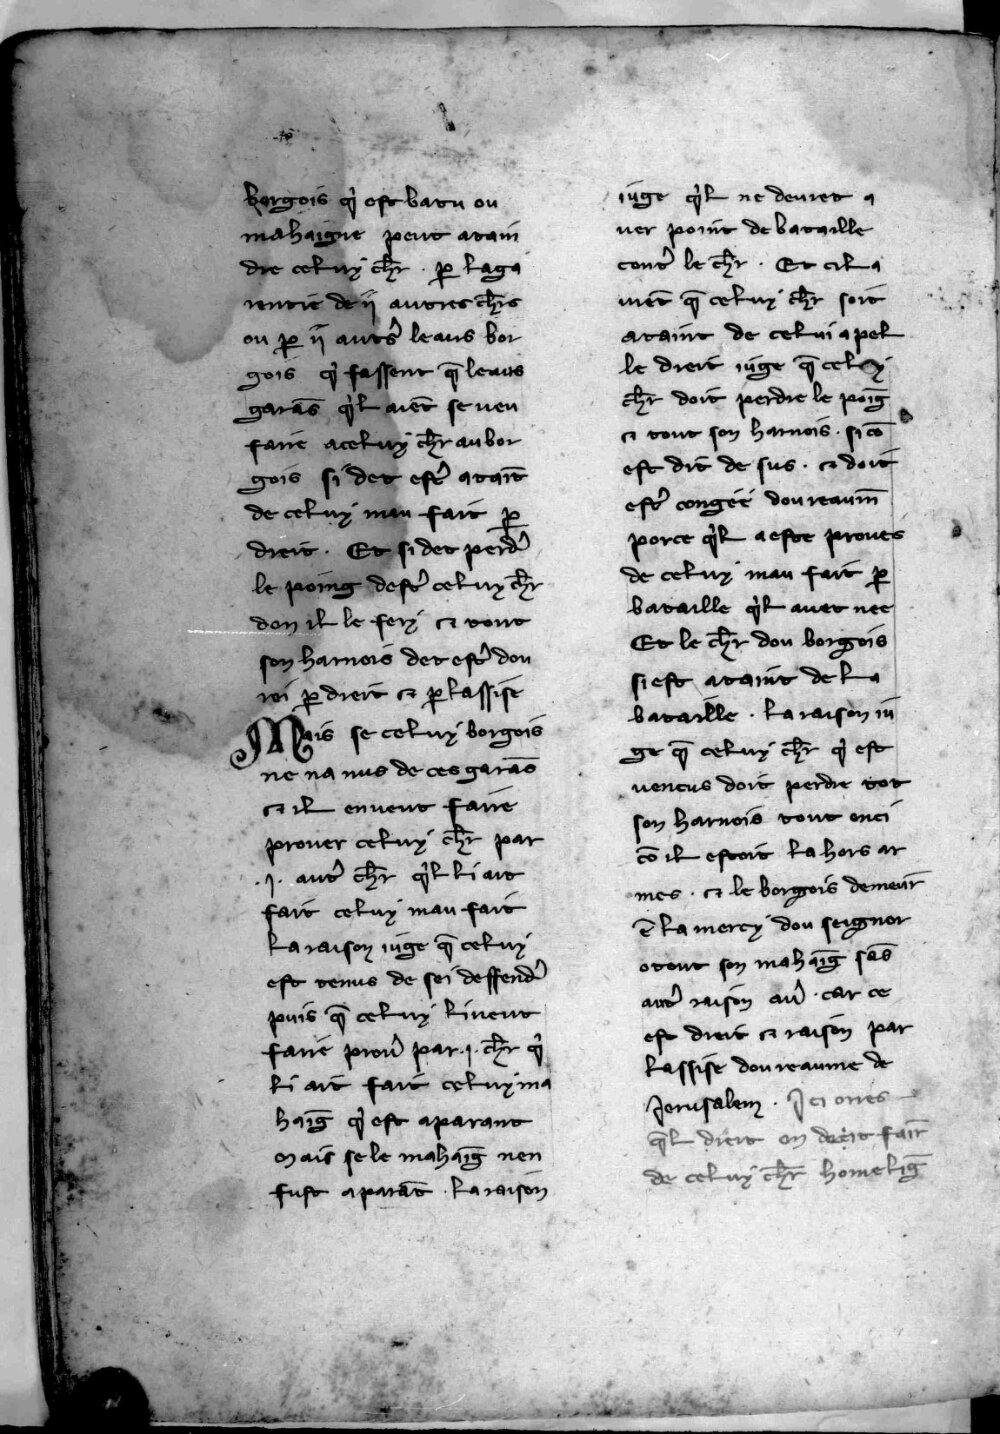 borgois q̇ est batu ou
mahaigne peut atain
dre celuy ch̅r . p̲ laga
rentie de ii autres ch̅rs
ou p̲ ii autr̉s leaus bor
gois q̇ fassent q̅ leaus
garās q̇l aiēt se veu
faire aceluy ch̅r au bor
gois si det estr̉ ataīt
de celuy mau fait p̲
dreit . Et si det perdr̉
le poing destr̉ celuy ch̅r
don il le fery ⁊ tout
son harneis det estr̉ dou
roi p̲ dreit ⁊ p̲ lassise
Mais se celuy borgois
ne na nus de ces garās
⁊ il en veut faire
prover celuy ch̅r par
.j. autr̉ ch̅r q̇l li ait
fait celuy mau fait
la raison iuge q̅ celuy
est tenus de sei deffendr̉
puis q̅ celuy li veut
faire prouv̉ par .j. ch̅r q̇
li ait fait celuy ma
haig̅ q̇ est aparant
Mais se le mahaig̅ nen
fust aparāt . la raison
iuge q̇l ne devret a
ver point de bataille
contr̉ le ch̅r . Et cil a
uiēt q̅ celuy ch̅r soit
ataint de celui apel
le dreit iuge q̅ celuy
ch̅r doit perdre le poig̅
⁊ tout son harnois . si cō
est dit de sus . ⁊ doit
estr̉ congeé dou reaum̅
porce q̇l a este proves
de celuy mau fait p̲
bataille q̇l avet nee
Et le ch̅r dou borgois
si est ataint de la
bataille . la raison iu
ge q̅ celuy ch̅r q̇ est
vencus doit perdre tot
son harnois tout enci
cō il estoit la hors ar
mes . ⁊ le borgois demeur̄
ē la mercy dou seignor
o tout son mahaig̅ sās
autr̉ raison av̉ . car ce
est dreit ⁊ raison par
lassise dou reaume de
Jerusalem . Ici ores
q̅l dreit on doit fair̄
de celuy ch̅r home lig̅